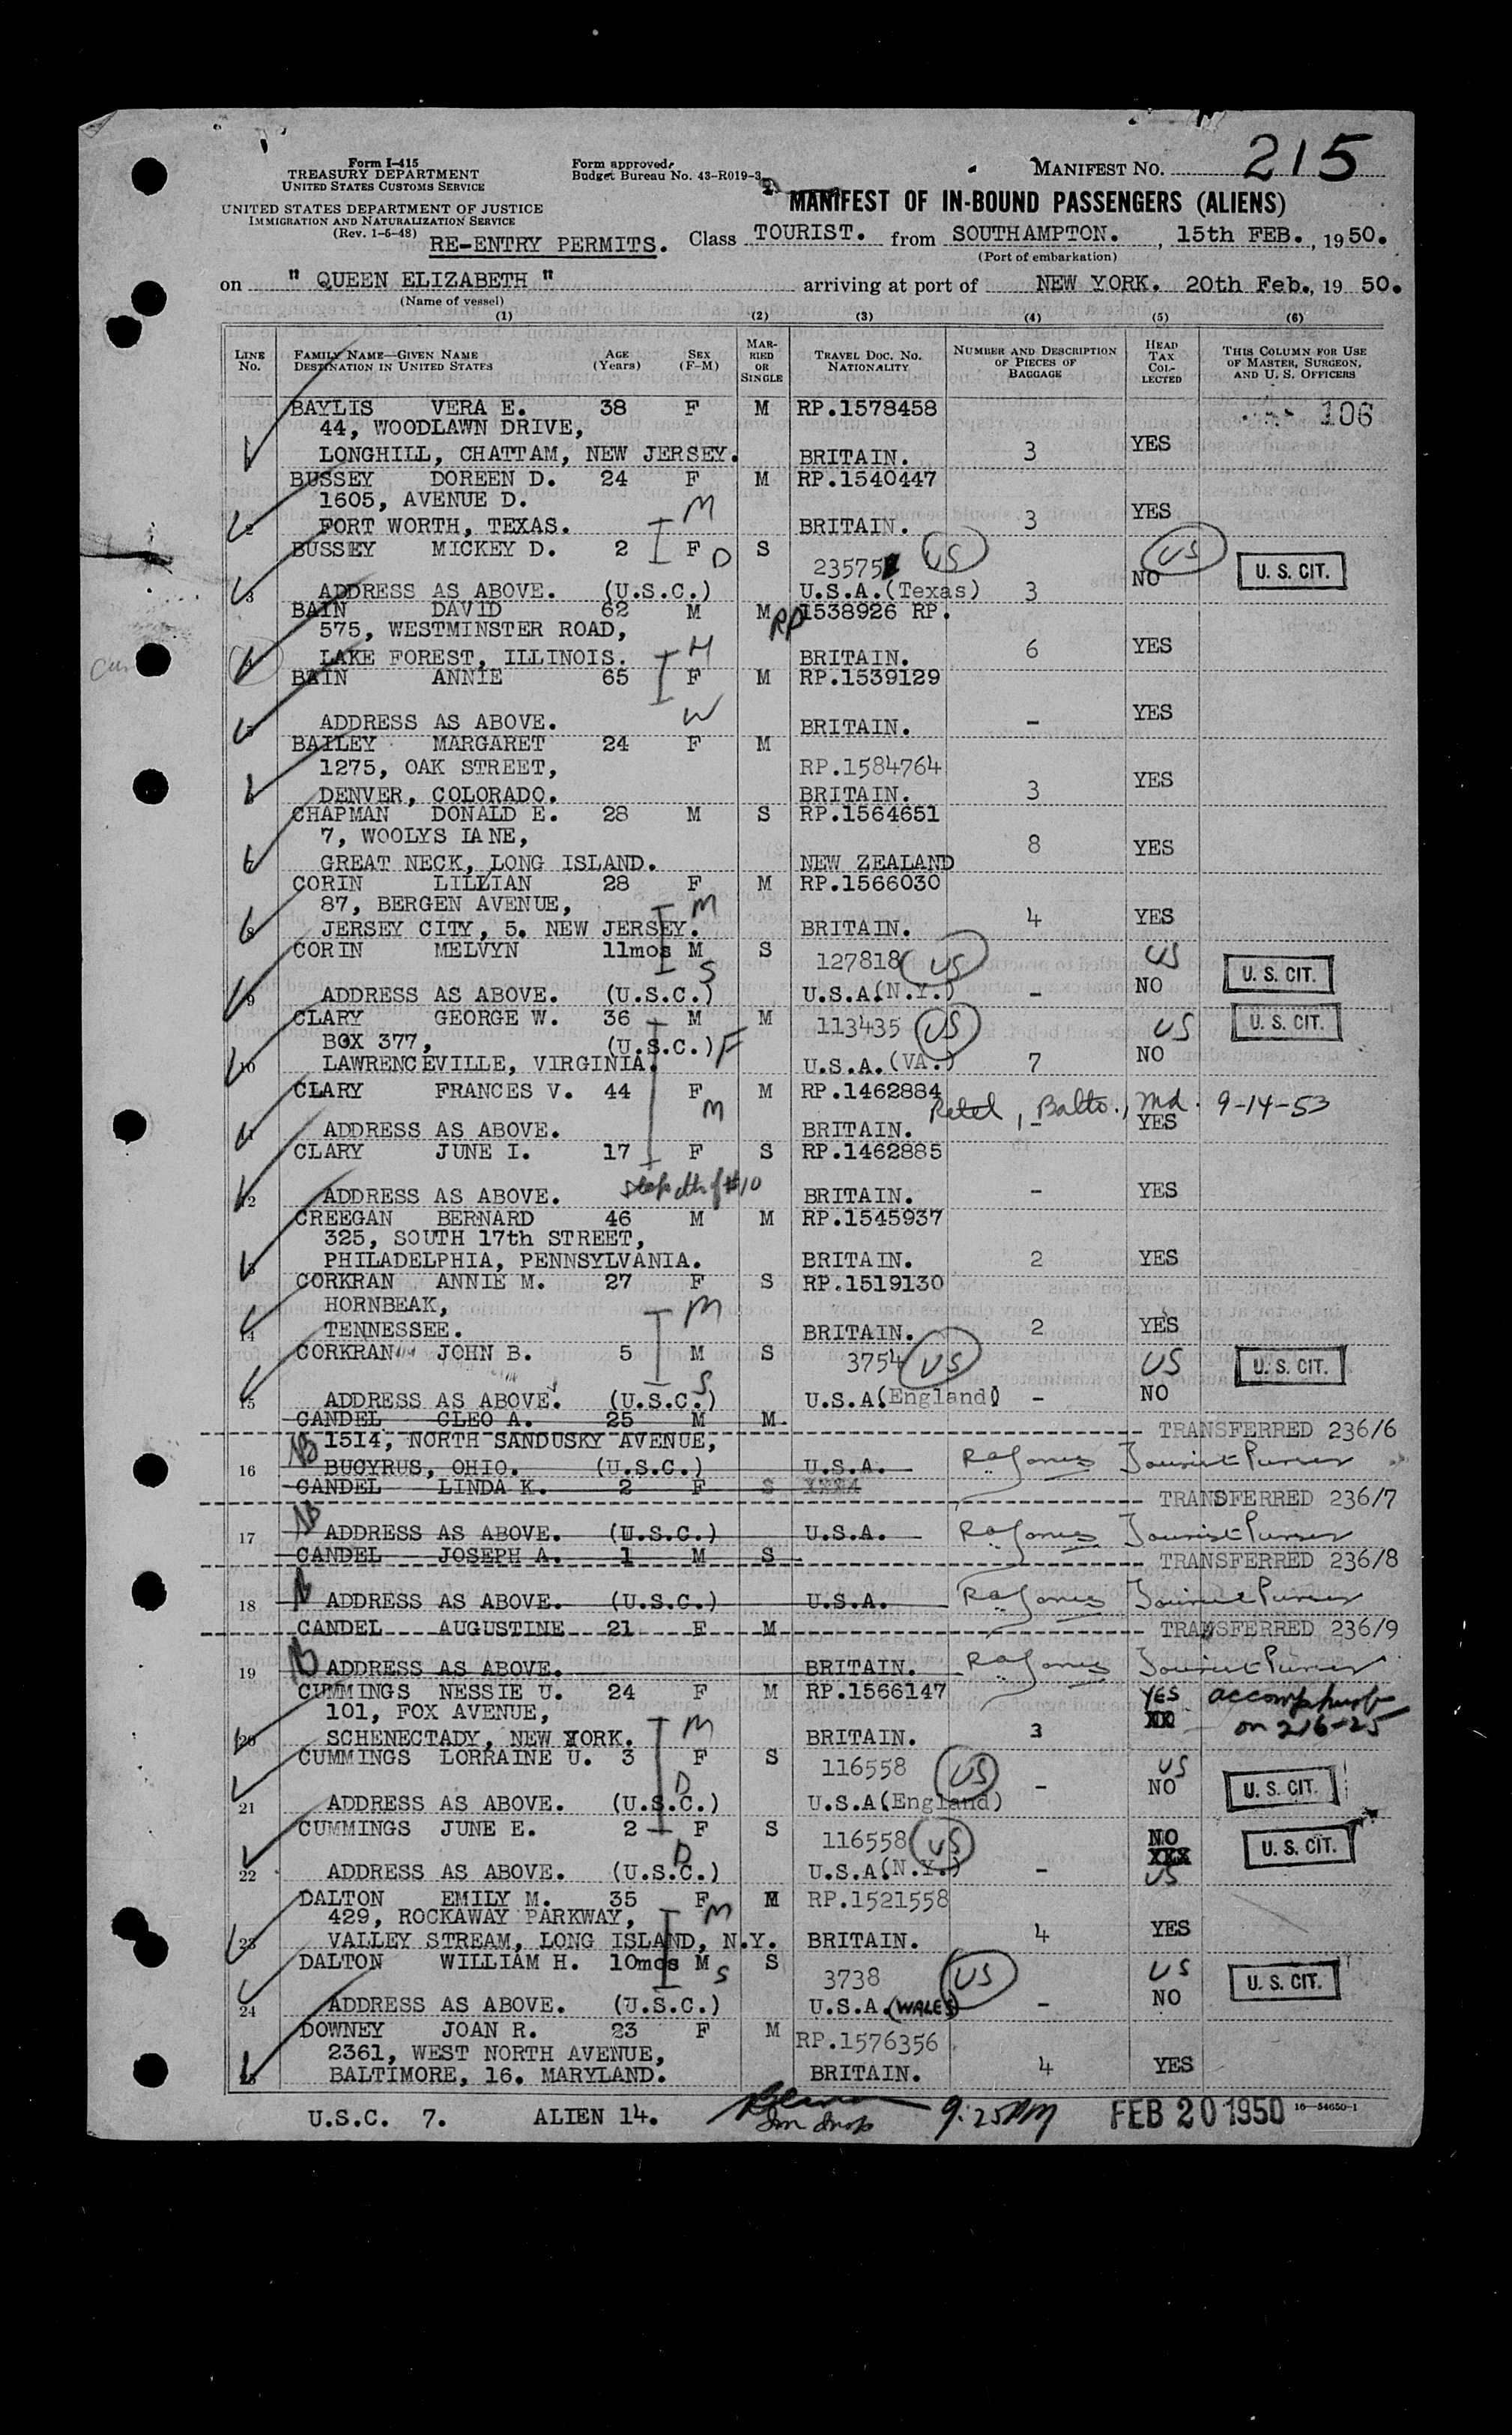 215
Form I-415
TREASURY DEPARTMENT
UNITED STATES CUSTOMS SERVICE
Form approved.
Budget Bureau No. 43-R019-3.
MANIFEST NO.
UNITED STATES DEPARTMENT OF JUSTICE
IMMIGRATION AND NATURALIZATION SERVICE
(Rev. 1-5-48)
MANIFEST OF IN-BOUND PASSENGERS (ALIENS)
RE-ENTRY PERMITS. Class TOURIST. from SOUTHAMPTON. , 15th FEB., 1950.
(Port of embarkation)
on " QUEEN ELIZABETH " arriving at port of NEW YORK. 20th Feb., 19 50.
(Name of vessel)
(1) (2) (3) (4) (5) (6)
LINE NO. FAMILY NAME—GIVEN NAME DESTINATION IN UNITED STATES AGE (Years) SEX (F-M) MARRIED OR SINGLE TRAVEL DOC. NO. NATIONALITY NUMBER AND DESCRIPTION OF PIECES OF BAGGAGE HEAD TAX COLLECTED THIS COLUMN FOR USE OF MASTER, SURGEON, AND U. S. OFFICERS
BAYLIS VERA E. 38 F M RP.1578458 106
44, WOODLAWN DRIVE,
LONGHILL, CHATTAM, NEW JERSEY. BRITAIN. 3 YES
BUSSEY DOREEN D. 24 F M RP.1540447
1605, AVENUE D. M
2 FORT WORTH, TEXAS. BRITAIN. 3 YES
BUSSEY MICKEY D. 2 F D S 23575 US US U. S. CIT.
3 ADDRESS AS ABOVE. (U.S.C.) U.S.A.(Texas) 3 NO
BAIN DAVID 62 M M RP 1538926 RP.
575, WESTMINSTER ROAD,
LAKE FOREST, ILLINOIS. H BRITAIN. 6 YES
BAIN ANNIE 65 F M RP.1539129
ADDRESS AS ABOVE. W BRITAIN. - YES
BAILEY MARGARET 24 F M
1275, OAK STREET, RP.1584764
DENVER, COLORADO. BRITAIN. 3 YES
CHAPMAN DONALD E. 28 M S RP.1564651
7, WOOLYS LANE,
GREAT NECK, LONG ISLAND. NEW ZEALAND 8 YES
CORIN LILLIAN 28 F M RP.1566030
87, BERGEN AVENUE, M
8 JERSEY CITY, 5. NEW JERSEY. BRITAIN. 4 YES
CORIN MELVYN 11mos M S S 127818 US US U. S. CIT.
9 ADDRESS AS ABOVE. (U.S.C.) U.S.A.(N.Y.) - NO
CLARY GEORGE W. 36 M M 113435 US US U. S. CIT.
BOX 377, (U.S.C.) F
10 LAWRENCEVILLE, VIRGINIA. U.S.A.(VA.) 7 NO
CLARY FRANCES V. 44 F M M RP.1462884 Balto., Md. 9-14-53
11 ADDRESS AS ABOVE. BRITAIN. - YES
CLARY JUNE I. 17 F S RP.1462885
Step dth of #10
12 ADDRESS AS ABOVE. BRITAIN. - YES
CREEGAN BERNARD 46 M M RP.1545937
325, SOUTH 17th STREET,
PHILADELPHIA, PENNSYLVANIA. BRITAIN. 2 YES
CORKRAN ANNIE M. 27 F S RP.1519130
HORNBEAK, M
14 TENNESSEE. BRITAIN. 2 YES
CORKRAN JOHN B. 5 M S S 3754 US US U. S. CIT.
15 ADDRESS AS ABOVE. (U.S.C.) U.S.A(England) - NO
CANDEL CLEO A. 25 M M. TRANSFERRED 236/6
1514, NORTH SANDUSKY AVENUE,
16 BUCYRUS, OHIO. (U.S.C.) U.S.A. RaJones Tourist Purser
CANDEL LINDA K. 2 F S TRANSFERRED 236/7
17 ADDRESS AS ABOVE. (U.S.C.) U.S.A. RaJones Tourist Purser
CANDEL JOSEPH A. 1 M S TRANSFERRED 236/8
18 ADDRESS AS ABOVE. (U.S.C.) U.S.A. RaJones Tourist Purser
CANDEL AUGUSTINE 21 F M TRANSFERRED 236/9
19 ADDRESS AS ABOVE. BRITAIN. RaJones Tourist Purser
CUMMINGS NESSIE U. 24 F M RP.1566147 YES
101, FOX AVENUE, M on 216-25
20 SCHENECTADY, NEW YORK. BRITAIN. 3
CUMMINGS LORRAINE U. 3 F D S 116558 US US U. S. CIT.
21 ADDRESS AS ABOVE. (U.S.C.) U.S.A(England) - NO
CUMMINGS JUNE E. 2 F D S 116558 US NO U. S. CIT.
22 ADDRESS AS ABOVE. (U.S.C.) U.S.A(N.Y.) - US
DALTON EMILY M. 35 F M RP.1521558
429, ROCKAWAY PARKWAY, M
23 VALLEY STREAM, LONG ISLAND, N.Y. BRITAIN. 4 YES
DALTON WILLIAM H. 10mos M S S 3738 US US U. S. CIT.
24 ADDRESS AS ABOVE. (U.S.C.) U.S.A.(WALES) - NO
DOWNEY JOAN R. 23 F M RP.1576356
2361, WEST NORTH AVENUE,
BALTIMORE, 16. MARYLAND. BRITAIN. 4 YES
U.S.C. 7. ALIEN 14. 9:25AM FEB 20 1950 16—54650-1